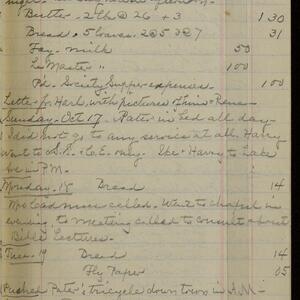 Butter - 2 lb @ 26 + 3 1 30
Bread - 5 loaves 2@5 3@7 31
Fay - milk 50
Le Master 1 00
Pd. Society Supper expenses 1 00
Letter fr. Harl, with pictures of him + Rena -
Sunday - Oct 17 - Pater in bed all day -
I did not go to any service at all. Harry
went to S.S. + C.E. only. Ike + Harry to Lake
in P.M.
Monday - 18 Bread 14
Mrs called. Went to chapel in
evening to meeting called to consult about
Bible Lectures.
Tues. 19 Bread 14
Fly Paper 05
Pushed Pater's tricycle down town in A.M. -